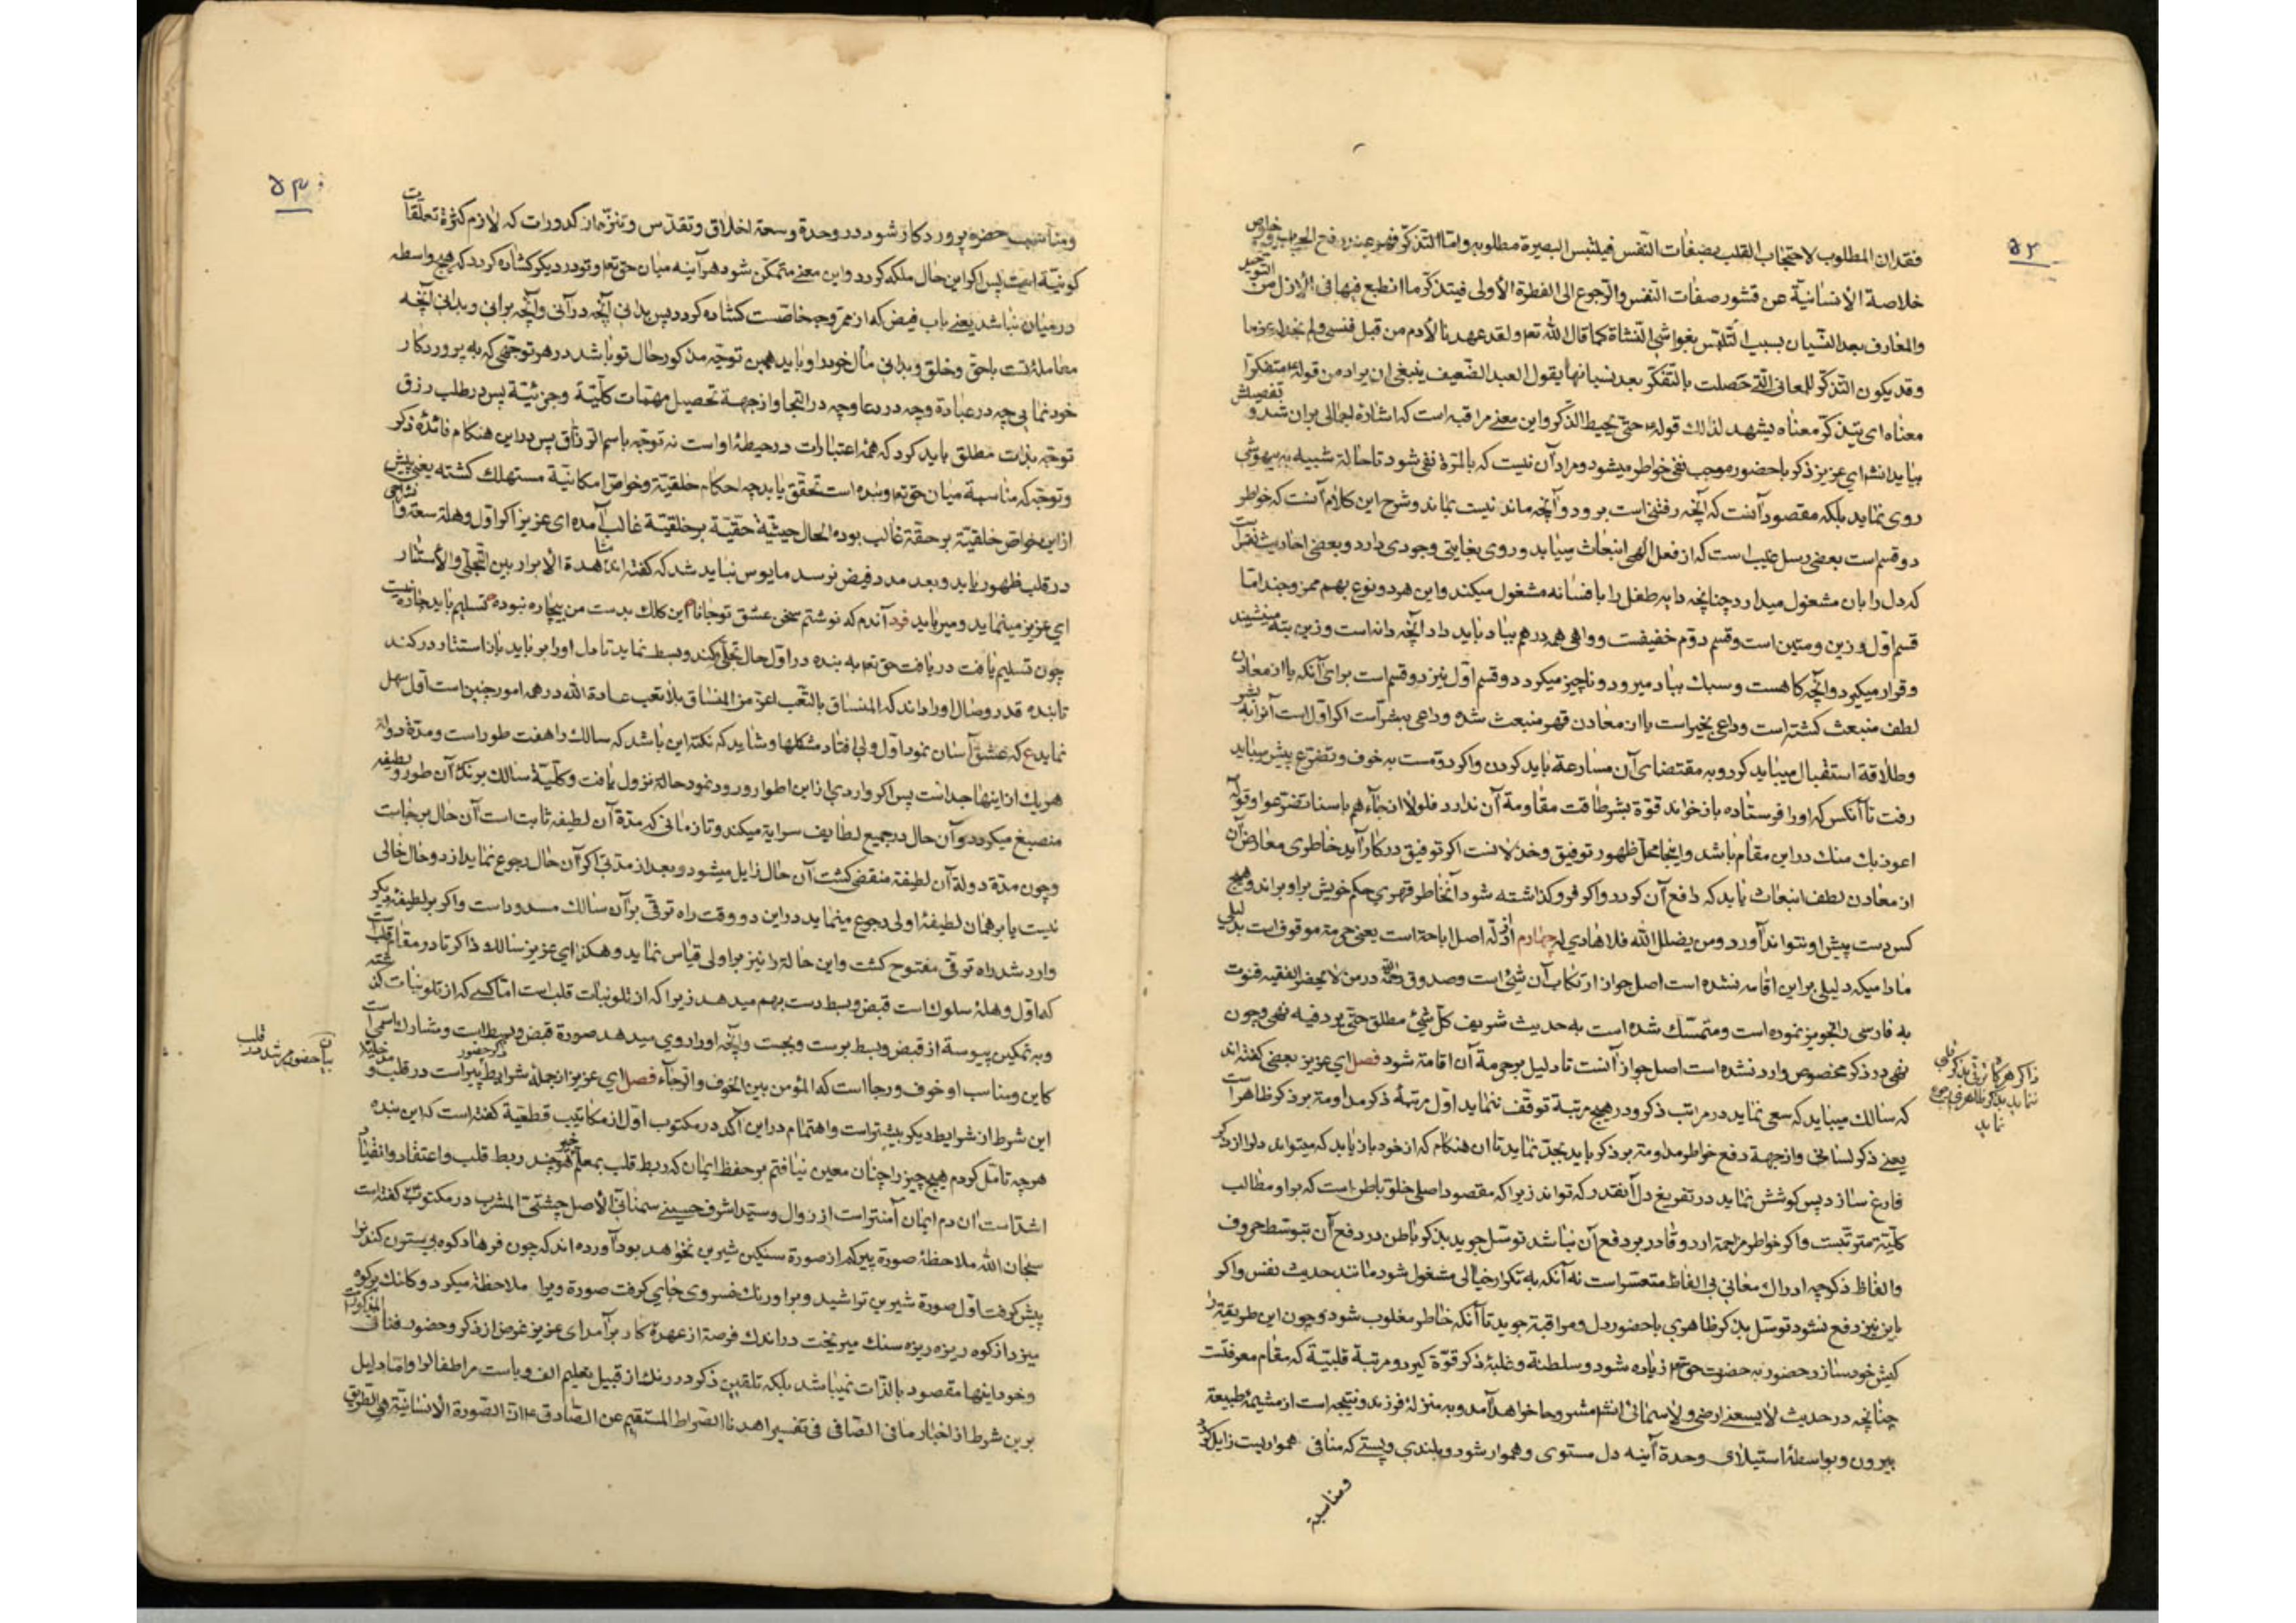 ۵۲
فقدان المطلوب لاحتجاب القلب بصفات النفس فيلتبس البصيرة مطلوبه واما التذكر فهو عند رفع الحجب وخواص
خلاصة الأنسانية عن قشور صفات النفس والرجوع الى الفطرة الأولى فيتذكر ما انطبع فيها فى الأزل من التوحيد
والمعارف بعد النسيان بسبب التلبس بغواشى النشاة كما قال الله تعم ولقد عهدنا لآدم من قبل فنسى ولم نجد له عزما
وقد يكون التذكر للمعانى التى حصلت بالتفكر بعد نسيانها يقول العبد الضعيف ينبغى ان يراد من قوله متفكرا
معناه اى يتذكر معناه يشهد لذلك قوله حتى يحيط الذكر واين معنى مراقبه است كه اشاره اجمالى بران شد و تفصيلش
بيايد انشا اى عزيز ذكر با حضور موجب نفى خواطر ميشود و مراد آن نيست كه بالمرة نفى شود تا حالة شبيه به بيهوشى
روى نمايد بلكه مقصود آنست كه آنچه رفتنى است برود و آنچه ماندنيست بماند و شرح اين كلام آنست كه خواطر
دو قسم است بعضى رسل غيب است كه از فعل الهى انبعاث مييابد و روى بغايتى وجودى دارد و بعضى احاديث نفس است
كه دل را بان مشغول ميدارد چنانچه دايه طفل را بافسانه مشغول ميكند و اين هر دو نوع بهم ممزوجند اما
قسم اول وزين و متين است و قسم دوم خفيفست و واهى همه درهم بباد بايد داد آنچه دانه است وزين بته مينشيند
و قرار ميگيرد و آنچه كاهست و سبك بباد ميرود و ناچيز ميگردد و قسم اول نيز دو قسم است براى آنكه يا از معادن
لطف منبعث كشته است و داعى بخير است يا از معادن قهر منبعث شده و داعى بشر است اگر اول است آنرا به بشر
و طلاقة استقبال ميبايد كرد و به مقتضاى آن مسارعة بايد كردن و اگر دوم است به خوف و تضرع پيش ميبايد
رفت تا آنكس كه او را فرستاده باز خواند قوة بشر طاقت مقاومة آن ندارد فلولا اذ جاءهم باسنا تضرعوا و قوله
اعوذ بك منك در اين مقام باشد و اينجا محل ظهور توفيق و خذلانست اگر توفيق در كار آيد خاطرى معارض آن
از معادن لطف انبعاث يابد كه دافع آن گردد و اگر فرو گذاشته شود آنخاطر قهرى حكم خويش براو براند و هيچ
كس دست پيش او نتواند آورد و من يضلل الله فلا هادى له چهارم از ادله اصل اباحة است يعنى حرمة موقوف است بدليلى
مادا ميكه دليلى بر اين اقامه نشده است اصل جواز ارتكاب آن شئ است و صدوق رحمه الله در من لا يحضر الفقيه قنوت
به فارسى را تجويز نموده است و متمسك شده است به حديث شريف كل شئ مطلق حتى يرد فيه نهى و چون
نهى در ذكر مخصوص وارد نشده است اصل جواز آنست تا دليل بر حرمة آن اقامة شود فصل اى عزيز بعضى كفته اند
كه سالك ميبايد كه سعى نمايد در مراتب ذكر و در هيچ مرتبة توقف ننمايد اول مرتبۀ ذكر مداومة بر ذكر ظاهر است
يعنى ذكر لسانى و از جهة دفع خواطر مداومة بر ذكر بايد بجد نمايد تا ان هنكام كه از خود باز يابد كه ميتواند دل را از ذكر
فارغ سازد پس كوشش نمايد در تفريغ دل آنقدر كه تواند زيرا كه مقصود اصلى خلق باطن است كه براو مطالب
كليّة مترتبست و اگر خواطر مزاحمة ارد و قادر بر دفع آن نباشد توسل جويد بذكر باطن در دفع آن بتوسط حروف
و الفاظ ذكر چه ادراك معانى بى الفاظ متعسر است نه آنكه به تكرار خيالى مشغول شود مانند حديث نفس و اگر
باين نيز دفع نشود توسل بذكر ظاهرى با حضور دل و مراقبة جويد تا آنكه خاطر مغلوب شود و چون اين طريقة را
كيش خود سازد حضور به حضرت حق تعم زياده شود و سلطنة و غلبۀ ذكر قوة گيرد و مرتبۀ قلبيّة كه مقام معرفتست
چنانچه در حديث لا يسعنى ارضى ولا سمائى انشا مشروحا خواهد آمد و به منزلۀ فرزند و نتيجه است از مشيمۀ طبيعة
بيرون و بواسطۀ استيلاى وحدة آينه دل مستوى و هموار شود و بلندى و پستى كه منافى هموار بيت زايل گردد
ومناسبة
ذاكر هر گاه ترقى بذكر قلبى
ننمايد بذكر ظاهرى رجوع
نمايد
۵۳
ومناسب حضرة پروردكار شود در وحدة وسعة اخلاق و تقدس و تنزه از كدورات كه لازم كثرة تعلقات
كونيّة است پس اگر اين حال ملكه گردد و اين معنى متمكن شود هر آينه ميان حق تعم و تو در ديگر كشاده گردد كه هيچ واسطه
در ميان نباشد يعنى باب فيض كه از ممر وجه خاصست كشاده گردد پس بدانى آنچه در آنى و آنچه برانى و بدانى آنچه
معاملۀ تست با حق و خلق و بدانى مآل خود را و بايد همين توجه مذكور حال تو باشد در هر توجهى كه به پروردكار
خود نمايى چه در عبادة و چه در دعا و چه در التجا و از جهة تحصيل مهمات كليّة و جزئيّة پس در طلب رزق
توجه بذات مطلق بايد كرد كه همۀ اعتبارات در حيطۀ اواست نه توجه باسم الرزاق پس در اين هنكام فائدۀ ذكر
و توجه كه مناسبة ميان حق تعم و بنده است تحقق يابد چه احكام خلقيّة و خواص امكانيّة مستهلك كشته يعنى پيش
از اين خواص خلقيّة بر حقّة غالب بوده الحال حيثيّة حقيّة بر خلقيّة غالب آمده اى عزيز اگر اول وهلة سعة و
در قلب ظهور يابد و بعد مدد فيض نرسد مايوس نبايد شد كه كفته اند مشاهدة الأبرار بين التجلى والأستتار
اى عزيز مينمايد و ميربايد فرد آندم كه نوشتم سخن عشق تو جانا اين كلك بدست من بيچاره نبوده تسليم بايد چاره نيست
چون تسليم يافت دريافت حق تعم به بنده در اول حال تجلى كند و بسط نمايد تا دل او را بربايد باز استتار در كند
تا بنده قدر وصال او را داند كه المنساق بالتعب اعز من المنساق بلا تعب عادة الله در همه امور چنين است اول سهل
نمايد ع كه عشق آسان نمود اول ولى افتاد مشكلها و شايد كه نكته اين باشد كه سالك را هفت طور است و مدة دولة
هر يك از اينها جداست پس اگر واردى از اين اطوار ورود نمود حالة نزول يافت و كليّة سالك برنك آن طور و لطيفه
منصبغ ميكردد و آن حال در جميع لطايف سراية ميكند و تا زمانى كه مدة آن لطيفه ثابت است آن حال برجاست
و چون مدة دولة آن لطيفة منقضى كشت آن حال زايل ميشود و بعد از مدتى اگر آن حال رجوع نمايد از دو حال خالى
نيست يا بر همان لطيفۀ اولى رجوع مينمايد در اين دو وقت راه ترقى بر آن سالك مسدود است و اگر بر لطيفۀ ديگر
وارد شد راه ترقى مفتوح كشت و اين حالة را نيز براولى قياس نمايد و هكذا اى عزيز سالك ذاكر تا در مقام قلب است
كه اول وهلۀ سلوك است قبض و بسط دست بهم ميدهد زيرا كه از تلوينات قلب است اما كسى كه از تلوينات گذشته
و به تمكين پيوسته از قبض و بسط برست و بجست و آنچه او را روى ميدهد صورة قبض و بسط است و مشارك اسمى است
كاين و مناسب او خوف و رجا است كه المؤمن بين الخوف والرجاء فصل اى عزيز از جملۀ شرايط ذكر حضور پير است در قلب و
اين شرط از شرايط ديگر بيشتر است و اهتمام در اين آكد در مكتوب اول از مكاتيب قطعية كفته است كه اين بنده
هر چه تامل كردم هيچ چيز را چنان معين نيافتم بر حفظ ايمان كه ربط قلب بمعلم خير هر چند ربط قلب و اعتقاد و انقياد
اشد است ان دم ايمان آمنتر است از زوال و سيد اشرف حسينى سمنانى الأصل چشتى المشرب در مكتوب كفته است
سبحان الله ملاحظۀ صورة پير كم از صورة سنكين شيرين نخواهد بود آورده اند كه چون فرهاد كوه بيستون كندن را
پيش گرفت اول صورة شيرين تراشيد و برا ورنك خسروى جايى گرفت صورة ويرا ملاحظة ميكرد و كلنك بر كوه
ميزد از كوه ريزه ريزه سنك ميريخت در اندك فرصة از عهدۀ كار برآمد اى عزيز غرض از ذكر و حضور فناى
و خود اينها مقصود بالذات نميباشد بلكه تلقين ذكر در رنك از قبيل تعليم الف و با ست مر اطفال را و اما دليل
برين شرط از اخبار ما فى الصافى فى تفسير اهدنا الصراط المستقيم عن الصادق ان الصورة الأنسانية هى الطريق
بيان حضور مرشد در قلب